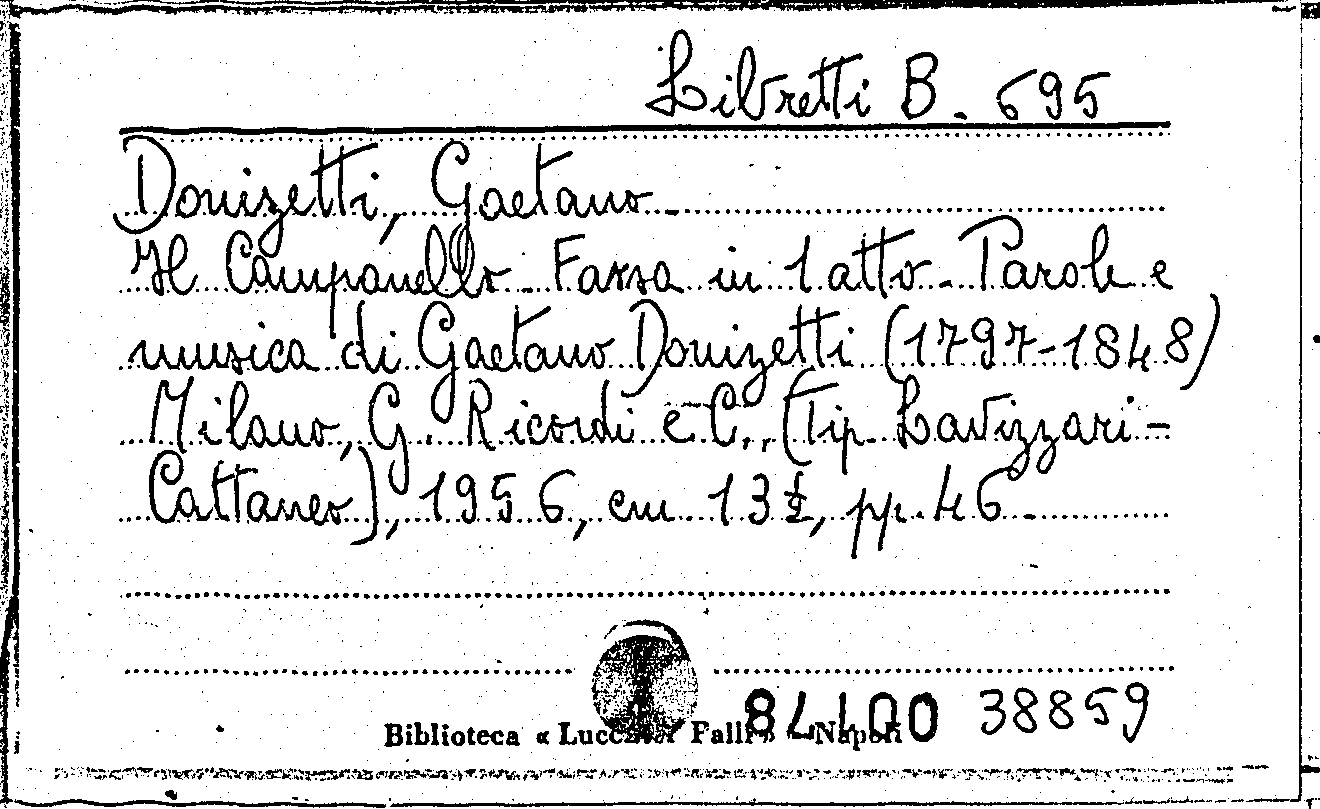 Libretti B. 695
Donizetti, Gaetano
Il Campanello. Farsa in 1 atto. Parole e
musica di Gaetano Donizetti (1797-1848)
Milano, G. Ricordi e C., (Tip. Lavizzari-
Cattaneo), 1956, cm 13½, pp. 46
38859
Biblioteca « Napoli